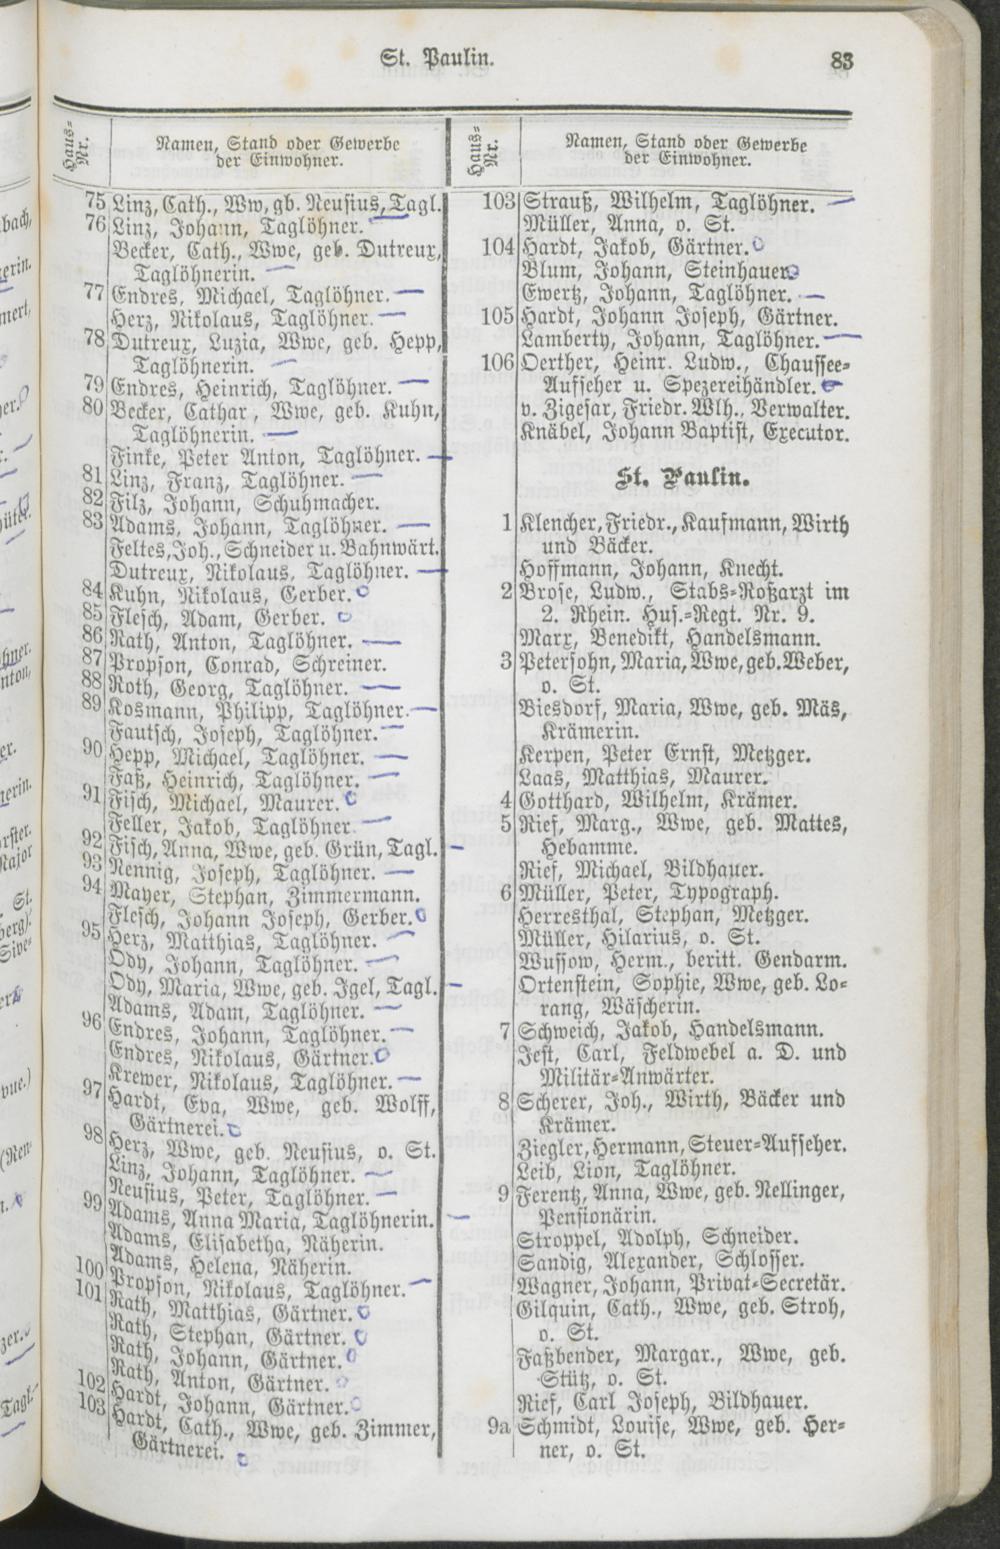 St. Paulin.
83
Haus-Nr.
Namen, Stand oder Gewerbe
der Einwohner.
75 Linz, Cath., Ww, gb. Neusius, Tagl.
76 Linz, Johann, Taglöhner.
Becker, Cath., Wwe, geb. Dutreux,
Taglöhnerin.
77 Endres, Michael, Taglöhner.
Herz, Nikolaus, Taglöhner.
78 Dutreux, Luzia, Wwe, geb. Hepp,
Taglöhnerin.
79 Endres, Heinrich, Taglöhner.
80 Becker, Cathar., Wwe, geb. Kuhn,
Taglöhnerin.
Finke, Peter Anton, Taglöhner.
81 Linz, Franz, Taglöhner.
82 Filz, Johann, Schuhmacher.
83 Adams, Johann, Taglöhner.
Feltes, Joh., Schneider u. Bahnwärt.
Dutreux, Nikolaus, Taglöhner.
84 Kuhn, Nikolaus, Gerber.
85 Flesch, Adam, Gerber.
86 Rath, Anton, Taglöhner.
87 Propson, Conrad, Schreiner.
88 Roth, Georg, Taglöhner.
89 Kosmann, Philipp, Taglöhner.
Fautsch, Joseph, Taglöhner.
90 Hepp, Michael, Taglöhner.
Faß, Heinrich, Taglöhner.
91 Fisch, Michael, Maurer.
Feller, Jakob, Taglöhner.
92 Fisch, Anna, Wwe, geb. Grün, Tagl.
93 Nennig, Joseph, Taglöhner.
94 Mayer, Stephan, Zimmermann.
Flesch, Johann Joseph, Gerber.
95 Herz, Matthias, Taglöhner.
Ody, Johann, Taglöhner.
Ody, Maria, Wwe, geb. Igel, Tagl.
Adams, Adam, Taglöhner.
96 Endres, Johann, Taglöhner.
Endres, Nikolaus, Gärtner.
Krewer, Nikolaus, Taglöhner.
97 Hardt, Eva, Wwe, geb. Wolff,
Gärtnerei.
98 Herz, Wwe, geb. Neusius, o. St.
Linz, Johann, Taglöhner.
Neusius, Peter, Taglöhner.
99 Adams, Anna Maria, Taglöhnerin.
Adams, Elisabetha, Näherin.
Adams, Helena, Näherin.
100 Propson, Nikolaus, Taglöhner.
101 Rath, Matthias, Gärtner.
Rath, Stephan, Gärtner.
Rath, Johann, Gärtner.
Rath, Anton, Gärtner.
102 Hardt, Johann, Gärtner.
103 Hardt, Cath., Wwe, geb. Zimmer,
Gärtnerei.
Haus-Nr.
Namen, Stand oder Gewerbe
der Einwohner.
103 Strauß, Wilhelm, Taglöhner.
Müller, Anna, o. St.
104 Hardt, Jakob, Gärtner.
Blum, Johann, Steinhauer.
Ewertz, Johann, Taglöhner.
105 Hardt, Johann Joseph, Gärtner.
Lamberty, Johann, Taglöhner.
106 Oerther, Heinr. Ludw., Chaussee-
Aufseher u. Spezereihändler.
v. Zigesar, Friedr. Wlh., Verwalter.
Knäbel, Johann Baptist, Executor.
St. Paulin.
1 Klencher, Friedr., Kaufmann, Wirth
und Bäcker.
Hoffmann, Johann, Knecht.
2 Brose, Ludw., Stabs-Roßarzt im
2. Rhein. Hus.-Regt. Nr. 9.
Marx, Benedikt, Handelsmann.
3 Petersohn, Maria, Wwe, geb. Weber,
o. St.
Biesdorf, Maria, Wwe, geb. Mäs,
Krämerin.
Kerpen, Peter Ernst, Metzger.
Laas, Matthias, Maurer.
4 Gotthard, Wilhelm, Krämer.
5 Rief, Marg., Wwe, geb. Mattes,
Hebamme.
Rief, Michael, Bildhauer.
6 Müller, Peter, Typograph.
Herresthal, Stephan, Metzger.
Müller, Hilarius, o. St.
Wussow, Herm., beritt. Gendarm.
Ortenstein, Sophie, Wwe, geb. Lo-
rang, Wäscherin.
7 Schweich, Jakob, Handelsmann.
Jest, Carl, Feldwebel a. D. und
Militär-Anwärter.
8 Scherer, Joh., Wirth, Bäcker und
Krämer.
Ziegler, Hermann, Steuer-Aufseher.
Leib, Lion, Taglöhner.
9 Ferentz, Anna, Wwe, geb. Nellinger,
Pensionärin.
Stroppel, Adolph, Schneider.
Sandig, Alexander, Schlosser.
Wagner, Johann, Privat-Secretär.
Gilquin, Cath., Wwe, geb. Stroh,
o. St.
Faßbender, Margar., Wwe, geb.
Stütz, o. St.
Rief, Carl Joseph, Bildhauer.
9a Schmidt, Louise, Wwe, geb. Her-
ner, o. St.